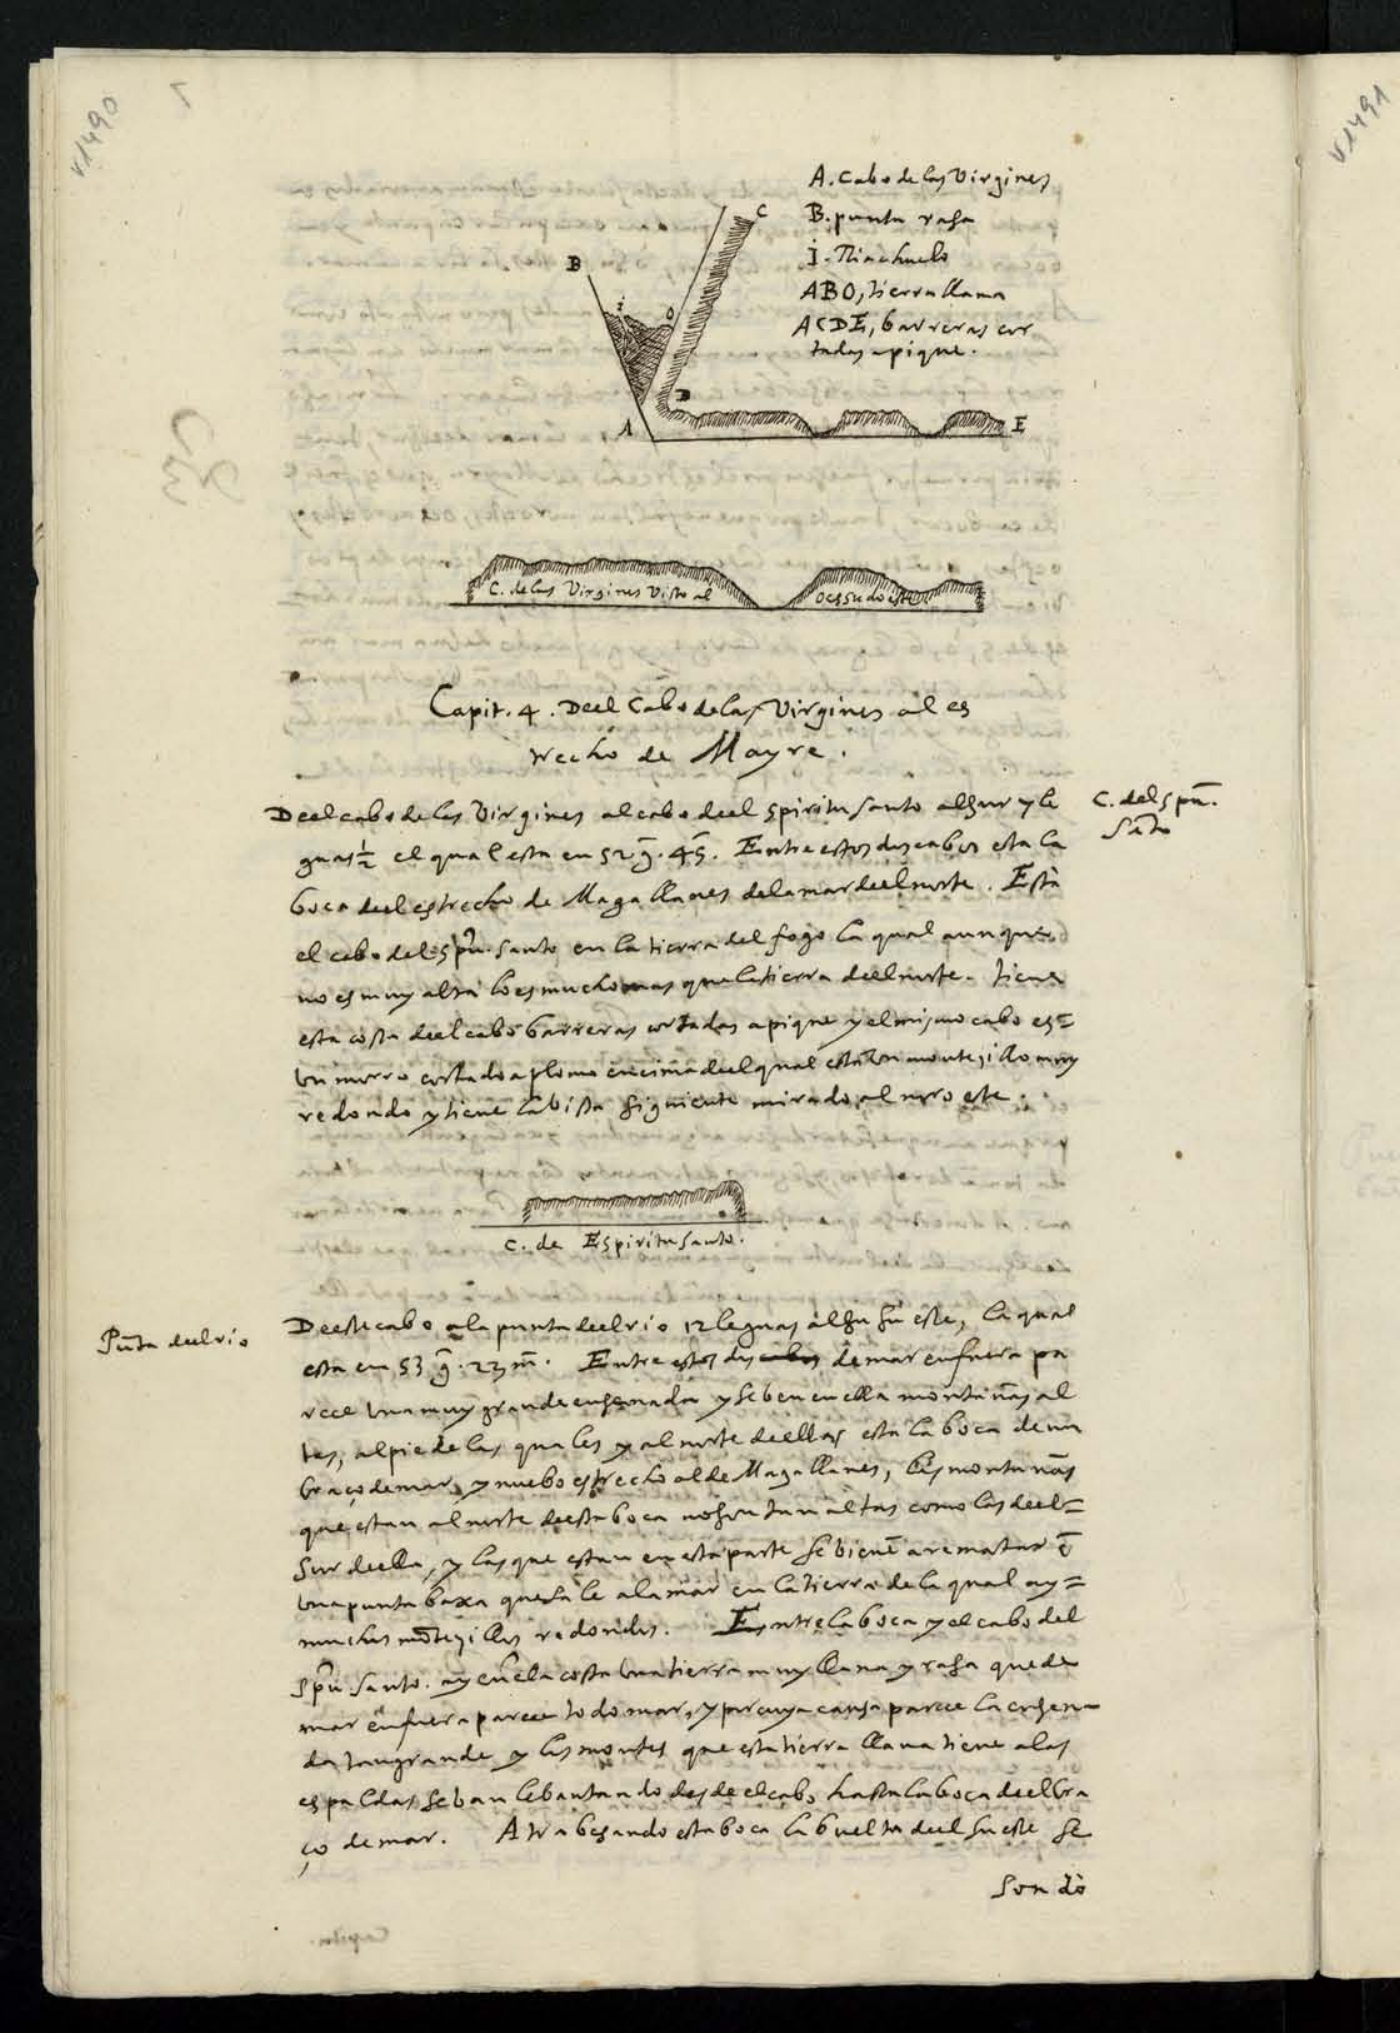 v1490
A. Cabo de las Virgines
B. punta rasa
j. Riachuelo
ABO, tierra llana
ACDE, barreras cor
tadas a pique.
B
C
i
O
D
A
E
C. de las Virgines Visto al oessudoeste
Capit. 4. Deel Cabo de las Virgines al es
trecho de Mayre.
Deel cabo de las Virgines al cabo deel spiritu santo al sur y le
guas ½ el qual esta en 52 g̃. 45. Entre estos dos cabos esta la
boca deel estrecho de Magallanes de la mar deel norte. Està
el cabo del spũ. santo en la tierra del fogo la qual aunque
no es muy alta lo es mucho mas que la tierra deel norte. tiene
esta costa deel cabo barreras cortadas a pique y el mismo cabo es=
Un morro cortado a plomo encima deel qual està un montezillo muy
redondo y tiene la bista siguiente mirado al noroeste.
C. del spũ.
Sãto
C. de Espiritu Santo.
Punta deel rio
Deeste cabo a la punta deel rio 12 leguas al susueste, la qual
esta en 53 g̃. 23 m̃. Entre estos dos cabos de mar en fuera pa
rece una muy grande ensenada y se ben en ella montañas al
tes, al pie de las quales y al norte deellas esta la boca de un
braço de mar, y nuebo estrecho al de Magallanes, las montañas
que estan al norte deesta boca no son tan altas como las deel=
Sur deella, y las que estan en esta parte se bienẽ a rematar ẽ
una punta baxa que sale a la mar en la tierra de la qual ay=
muchos mõtezillos redondos. Entre la boca y el cabo del
spũ. santo. ay en la costa una tierra muy llana y rasa que de
mar en fuera parece todo mar, y por cuya causa parece la ensena
da tan grande y los montes que esta tierra llana tiene a las
espaldas se ban lebantando desde el cabo hasta la boca deel bra
ço de mar. Atrabesando esta boca la buelta deel sueste se
sondò
v1491